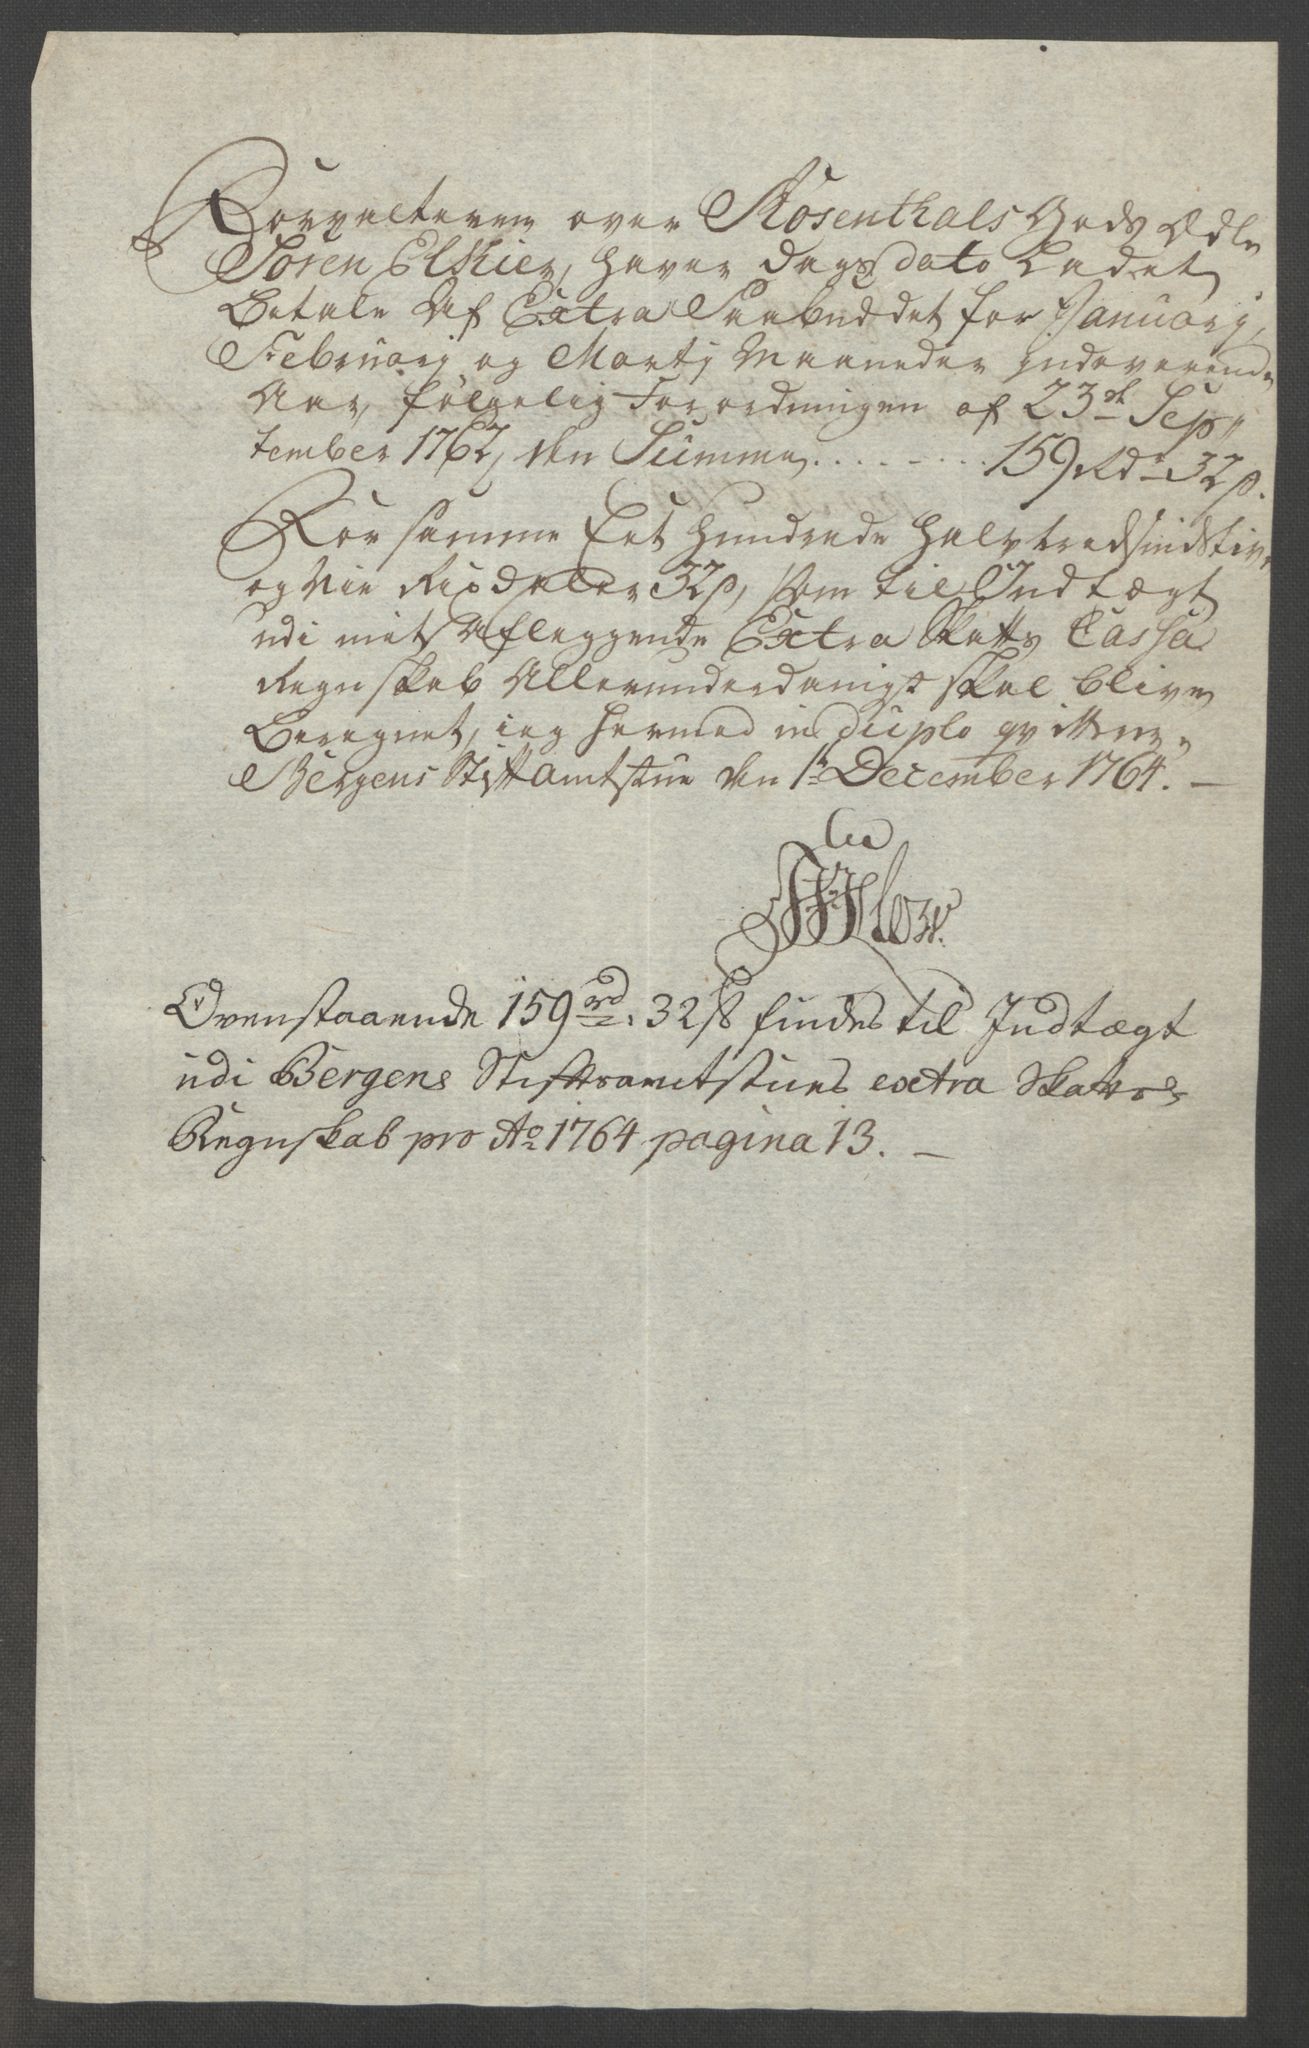 Forvalteren over Rosenthals Gods Ædle
Sören Elkier, haver dags dato Ladet
Betale Af Extra Paabuddet for Januarij,
Februarij og Martij Maaneder indeverende
Aar, følgelig Forordningen af 23de Sep„
tember 1762, den Summa . . . . . . . 159 Rdr 32 ß.
For samme Eet Hundrede Halvtredsindstive
og Nie Rixdaler 32 ß, som til Indtægt
udi mit Aflæggende Extra Skatts Cassa
Regnskab Allerunderdanigst skal blive
Beregnet, ieg hermed in duplo qvitterer.
Bergens Stiftamtstue den 1te December 1764. —
Ovenstaaende 159 rd. 32 ß findes til Indtægt
udi Bergens Stiftsamtstues extra Skattes
Regnskab pro Ao 1764 pagina 13. —